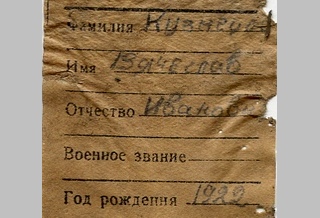 Фамилия Кузнецов
Имя Вячеслав
Отчество Иванов
Военное звание
Год рождения 1922